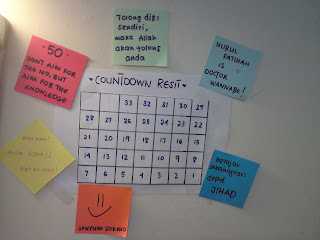 Tolong diri
sendiri,
maka Allah
akan tolong
anda
-50-
DON'T AIM FOR
THE NO, BUT
AIM FOR THE
KNOWLEDGE
NURUL
FATIHAH
IS
DOCTOR
WANNABE!
COUNTDOWN RESIT
33 32 31 30 29
28 27 26 25 24 23 22
21 20 19 18 17 16 15
14 13 12 11 10 9 8
7 6 5 4 3 2 1
Belajar
sebahagian
drpd
JIHAD
SENYUM SOKMO